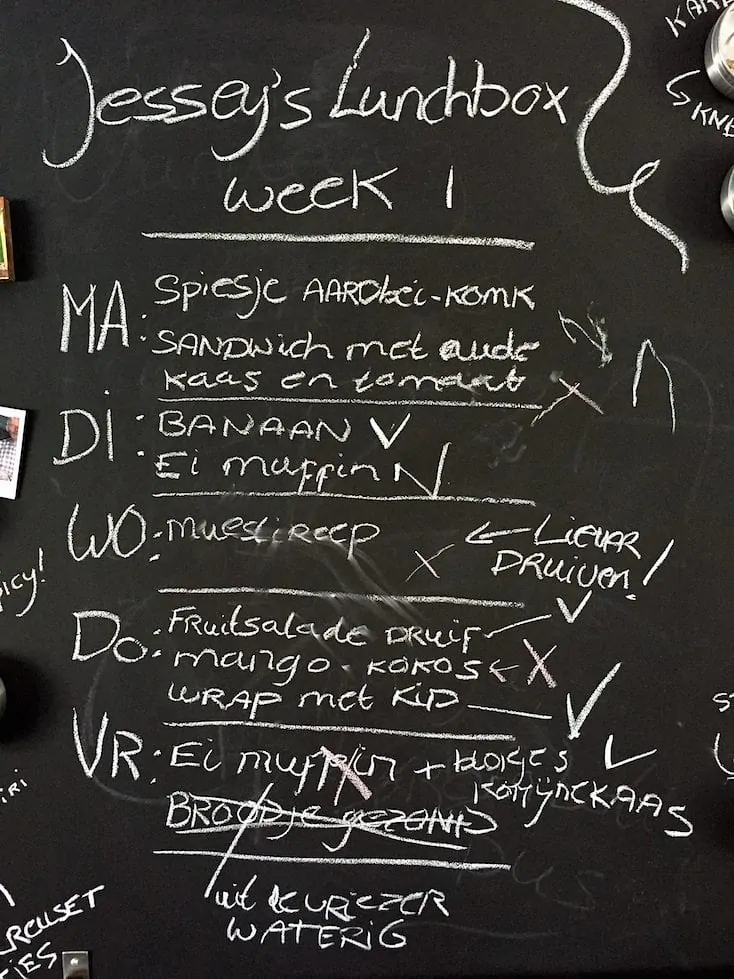 Jessey's Lunchbox
week 1
MA: Spiesje AARDbei-KOMK
SANDWich met oude
kaas en tomaat
Di: BANAAN V
Ei muffin N
WO: muesLiReep
← LieveR
DRUIVEN!
Do: FRuitsalade DRUIF
mango - KOKOS ←
WRAP met KiP
VR: Ei muffin + blokjes
KOMijnekAAS
BROODje gezOND
uit de VRiezeR
WATERig
icy!
iRi
CReuset
ies
KNE